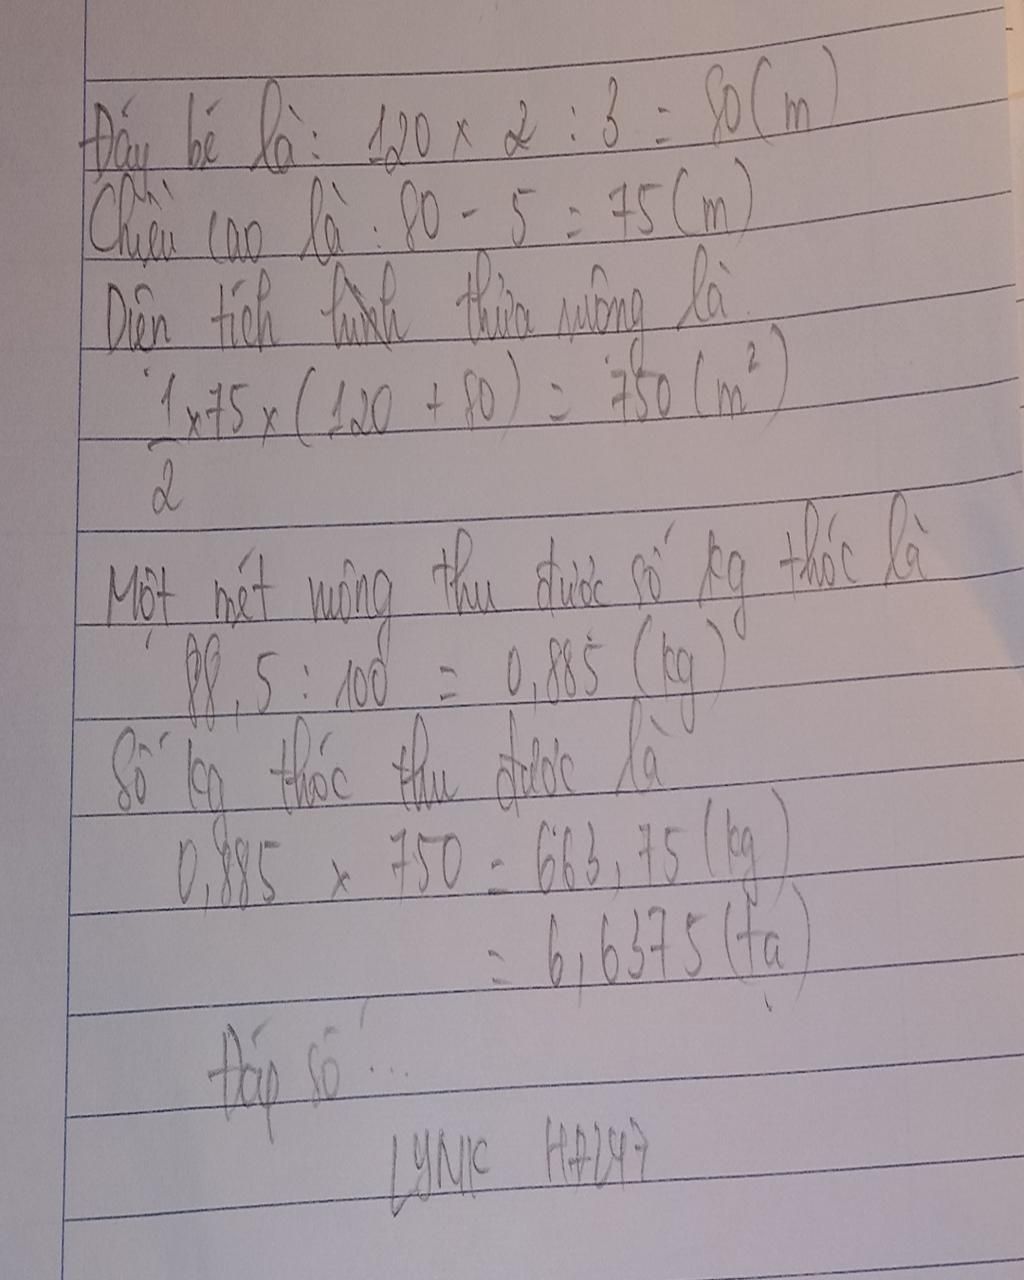 Đáy bé là: 120 x 2 : 3 = 80 (m)
Chiều cao là : 80 - 5 = 75 (m)
Diện tích hình thửa ruộng là
1/2 x 75 x (120 + 80) = 750 (m²)
Một mét ruộng thu được số kg thóc là
88,5 : 100 = 0,885 (kg)
Số kg thóc thu được là
0,885 x 750 = 663,75 (kg)
= 6,6375 (tạ)
Đáp số ...